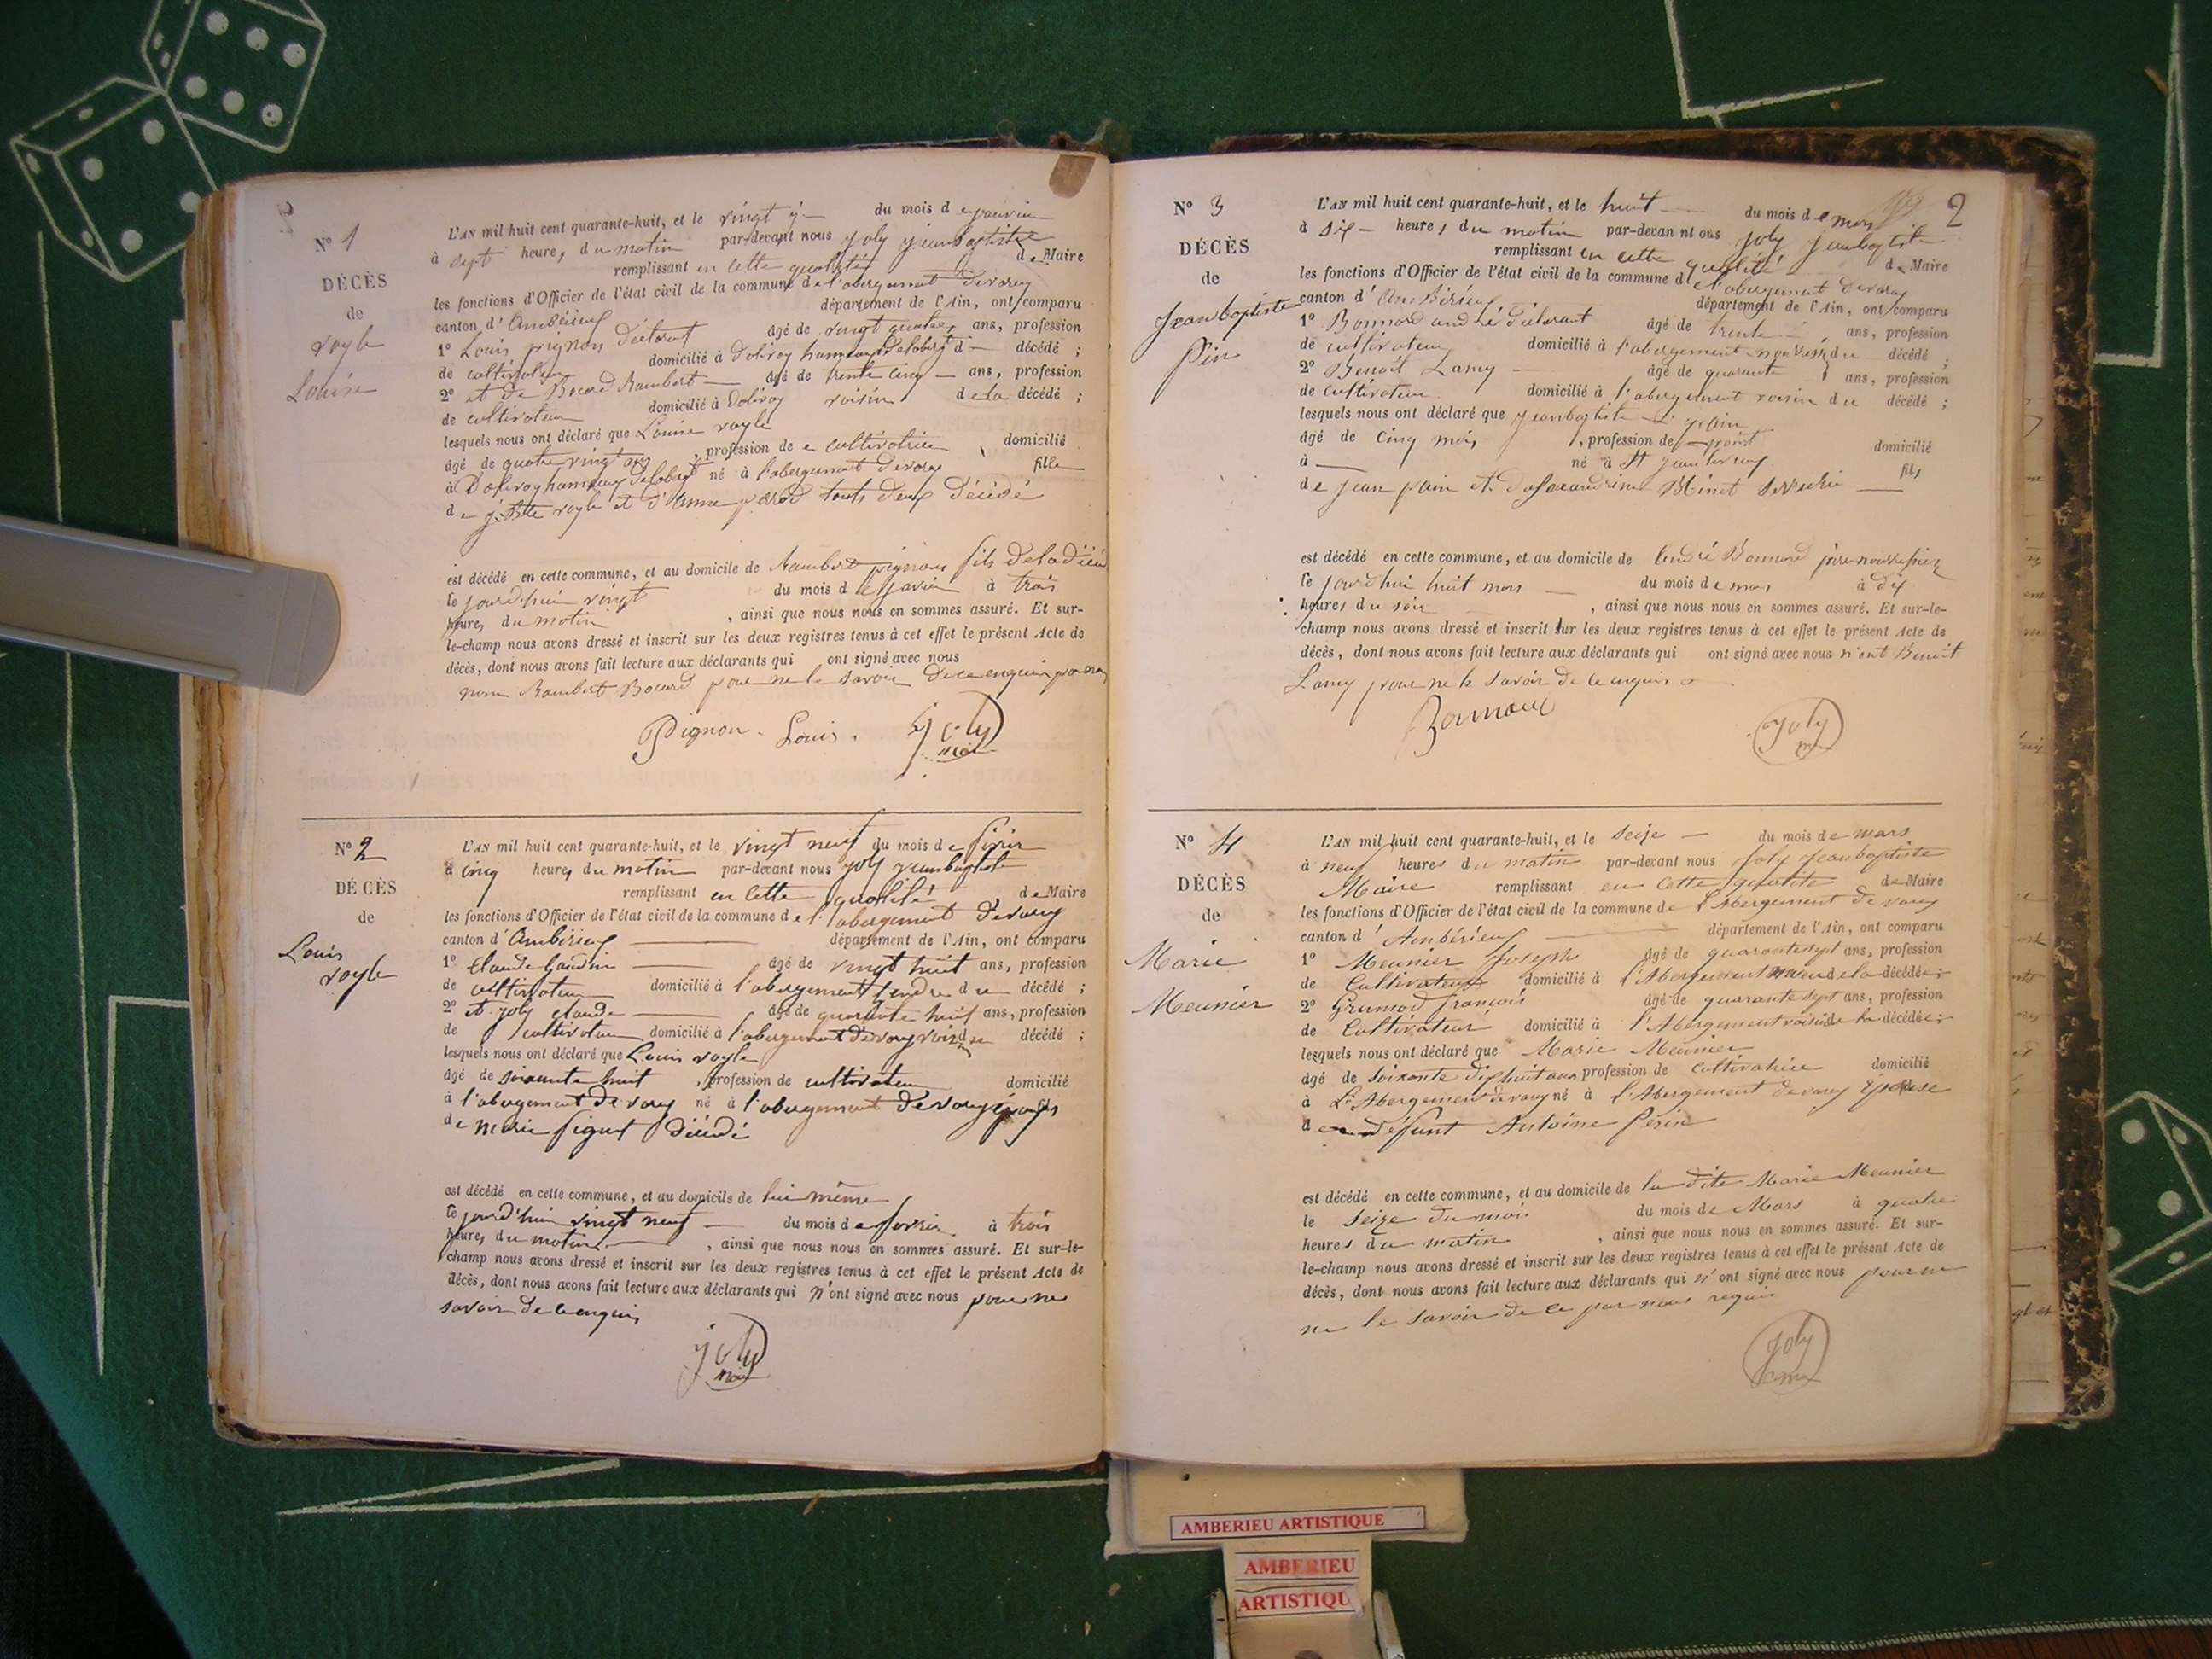 N° 1
DÉCÈS
de
royle
Louise
L'AN mil huit cent quarante-huit, et le vingt du mois de janvier
à sept heures du matin par-devant nous Joly jeanbaptiste
remplissant en cette qualité de Maire
les fonctions d'Officier de l'état civil de la commune de l'abergement devarey
canton d'Ambérieux département de l'Ain, ont comparu
1° Louis pignon âgé de vingt quatre ans, profession
de cultivateur domicilié à dolivoy hameau décédé ;
2° et de Bocard Rambert âgé de trente cinq ans, profession
de cultivateur domicilié à dolivoy voisin de la décédé ;
lesquels nous ont déclaré que Louise royle
âgé de quatre vingt , profession de cultivatrice domicilié
à né à l'abergement devarey fille
de royle et d'Anne touts deux décédé
est décédé en cette commune, et au domicile de Rambert pignon fils
le jourd'hui vingt du mois de à trois
heures du matin , ainsi que nous nous en sommes assuré. Et sur-
le-champ nous avons dressé et inscrit sur les deux registres tenus à cet effet le présent Acte de
décès, dont nous avons fait lecture aux déclarants qui ont signé avec nous
non Rambert Bocard pour ne le savoir de ce enquis
Pignon Louis. Joly
N° 2
DÉCÈS
de
Louis
royle
L'AN mil huit cent quarante-huit, et le vingt neuf du mois de
à cinq heures du matin par-devant nous joly jeanbaptiste
remplissant en cette qualité de Maire
les fonctions d'Officier de l'état civil de la commune de l'abergement devarey
canton d'Ambérieux département de l'Ain, ont comparu
1° Claude Gaudin âgé de vingt huit ans, profession
de cultivateur domicilié à l'abergement gendre du décédé ;
2° et joly claude âgé de quarante huit ans, profession
de cultivateur domicilié à l'abergement devarey voisin décédé ;
lesquels nous ont déclaré que Louis royle
âgé de soixante huit , profession de cultivateur domicilié
à l'abergement de varey né à l'abergement devarey
de marie décédé
est décédé en cette commune, et au domicile de lui même
le jourd'hui vingt neuf du mois de à trois
heures du matin , ainsi que nous nous en sommes assuré. Et sur-le-
champ nous avons dressé et inscrit sur les deux registres tenus à cet effet le présent Acte de
décès, dont nous avons fait lecture aux déclarants qui n'ont signé avec nous pour ne
savoir de ce enquis
joly
2
N° 3
DÉCÈS
de
Jeanbaptiste
Pin
L'AN mil huit cent quarante-huit, et le huit du mois de mars
à six heures du matin par-devant nous Joly jeanbaptiste
remplissant en cette qualité de Maire
les fonctions d'Officier de l'état civil de la commune de l'abergement devarey
canton d'Ambérieux département de l'Ain, ont comparu
1° Bonnard andré âgé de trente ans, profession
de cultivateur domicilié à l'abergement du décédé ;
2° Benoit Lamy âgé de quarante ans, profession
de cultivateur domicilié à l'abergement voisin du décédé ;
lesquels nous ont déclaré que jeanbaptiste
âgé de cinq mois , profession de domicilié
à né à St jean fils
de jean et
est décédé en cette commune, et au domicile de André Bonnard père nourricier
le jourd'hui huit mars du mois de mars à dix
heures du soir , ainsi que nous nous en sommes assuré. Et sur-le-
champ nous avons dressé et inscrit sur les deux registres tenus à cet effet le présent Acte de
décès, dont nous avons fait lecture aux déclarants qui ont signé avec nous non Benoit
Lamy pour ne le savoir de ce enquis
Joly
N° 4
DÉCÈS
de
Marie
Meunier
L'AN mil huit cent quarante-huit, et le seize du mois de mars
à neuf heures du matin par-devant nous Joly Jeanbaptiste
Maire remplissant en cette qualité de Maire
les fonctions d'Officier de l'état civil de la commune de l'Abergement de varey
canton d'Ambérieux département de l'Ain, ont comparu
1° Meunier Joseph âgé de quarante sept ans, profession
de Cultivateur domicilié à l'Abergement de la décédée ;
2° Grumod françois âgé de quarante sept ans, profession
de Cultivateur domicilié à l'Abergement voisin de la décédée ;
lesquels nous ont déclaré que Marie Meunier
âgé de soixante dix huit ans profession de Cultivatrice domicilié
à L'Abergement devarey né à l'Abergement devarey Épouse
de defunt Antoine Perin
est décédé en cette commune, et au domicile de la dite Marie Meunier
le seize du mois du mois de Mars à quatre
heures du matin , ainsi que nous nous en sommes assuré. Et sur-
le-champ nous avons dressé et inscrit sur les deux registres tenus à cet effet le présent Acte de
décès, dont nous avons fait lecture aux déclarants qui n'ont signé avec nous pour ne
ne le savoir de ce par nous requis
Joly
AMBERIEU ARTISTIQUE
AMBERIEU
ARTISTIQU